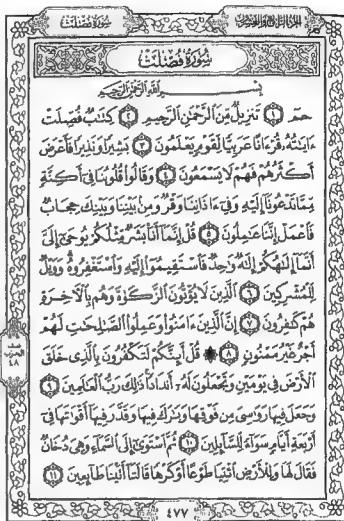 سُورَةُ فُصِّلَتْ
الجزء الرابع والعشرون
سُورَةُ فُصِّلَتْ
بِسْمِ اللَّهِ الرَّحْمَٰنِ الرَّحِيمِ
حمٓ ١ تَنزِيلٌ مِّنَ ٱلرَّحْمَٰنِ ٱلرَّحِيمِ ٢ كِتَٰبٌ فُصِّلَتْ
ءَايَٰتُهُۥ قُرْءَانًا عَرَبِيًّا لِّقَوْمٍ يَعْلَمُونَ ٣ بَشِيرًا وَنَذِيرًا فَأَعْرَضَ
أَكْثَرُهُمْ فَهُمْ لَا يَسْمَعُونَ ٤ وَقَالُوا۟ قُلُوبُنَا فِىٓ أَكِنَّةٍ
مِّمَّا تَدْعُونَآ إِلَيْهِ وَفِىٓ ءَاذَانِنَا وَقْرٌ وَمِنۢ بَيْنِنَا وَبَيْنِكَ حِجَابٌ
فَٱعْمَلْ إِنَّنَا عَٰمِلُونَ ٥ قُلْ إِنَّمَآ أَنَا۠ بَشَرٌ مِّثْلُكُمْ يُوحَىٰٓ إِلَىَّ
أَنَّمَآ إِلَٰهُكُمْ إِلَٰهٌ وَٰحِدٌ فَٱسْتَقِيمُوٓا۟ إِلَيْهِ وَٱسْتَغْفِرُوهُ وَوَيْلٌ
لِّلْمُشْرِكِينَ ٦ ٱلَّذِينَ لَا يُؤْتُونَ ٱلزَّكَوٰةَ وَهُم بِٱلْءَاخِرَةِ
هُمْ كَٰفِرُونَ ٧ إِنَّ ٱلَّذِينَ ءَامَنُوا۟ وَعَمِلُوا۟ ٱلصَّٰلِحَٰتِ لَهُمْ
أَجْرٌ غَيْرُ مَمْنُونٍ ٨ ۞ قُلْ أَئِنَّكُمْ لَتَكْفُرُونَ بِٱلَّذِى خَلَقَ
ٱلْأَرْضَ فِى يَوْمَيْنِ وَتَجْعَلُونَ لَهُۥٓ أَندَادًا ذَٰلِكَ رَبُّ ٱلْعَٰلَمِينَ ٩
وَجَعَلَ فِيهَا رَوَٰسِىَ مِن فَوْقِهَا وَبَٰرَكَ فِيهَا وَقَدَّرَ فِيهَآ أَقْوَٰتَهَا فِىٓ
أَرْبَعَةِ أَيَّامٍ سَوَآءً لِّلسَّآئِلِينَ ١٠ ثُمَّ ٱسْتَوَىٰٓ إِلَى ٱلسَّمَآءِ وَهِىَ دُخَانٌ
فَقَالَ لَهَا وَلِلْأَرْضِ ٱئْتِيَا طَوْعًا أَوْ كَرْهًا قَالَتَآ أَتَيْنَا طَآئِعِينَ ١١
نصف
الحزب
٤٧٧